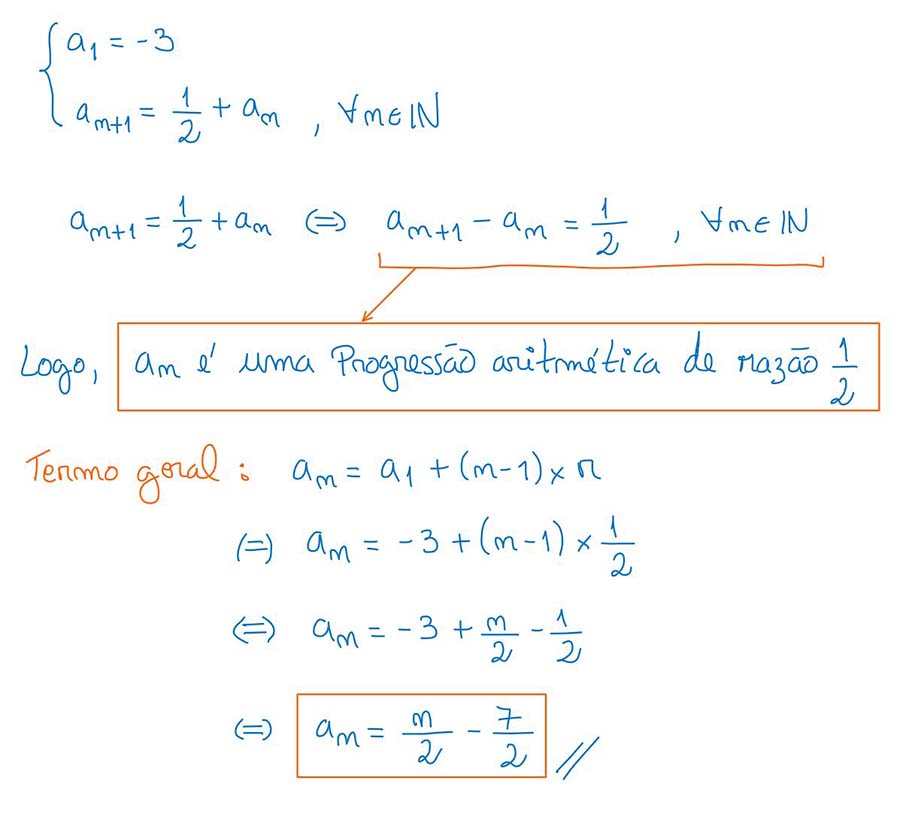 { a₁ = -3
aₙ₊₁ = 1/2 + aₙ , ∀n∈ℕ
aₙ₊₁ = 1/2 + aₙ ⇔ aₙ₊₁ - aₙ = 1/2 , ∀n∈ℕ
Logo, an é uma Progressão aritmética de razão 1/2
Termo geral : aₙ = a₁ + (n-1) × r
⇔ aₙ = -3 + (n-1) × 1/2
⇔ aₙ = -3 + n/2 - 1/2
⇔ aₙ = n/2 - 7/2 //